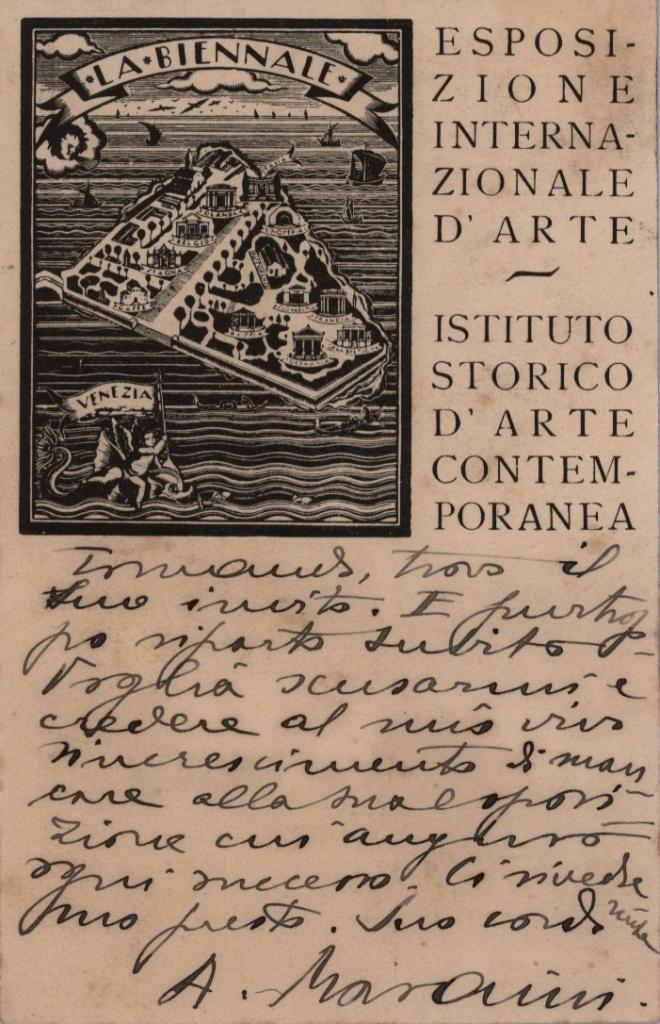 LA BIENNALE
VENEZIA
OLANDA
BELGIO
SPAGNA
ESPOSI-
ZIONE
INTERNA-
ZIONALE
D'ARTE
ISTITUTO
STORICO
D'ARTE
CONTEM-
PORANEA
Tornando, trovo il
suo invito. E purtrop
po riparto subito
Voglia scusarmi e
credere al mio vivo
rincrescimento di man
care alla sua esposi-
zione cui auguro
ogni successo. Ci rivedre
mo presto. Suo cordi
A. Maraini.